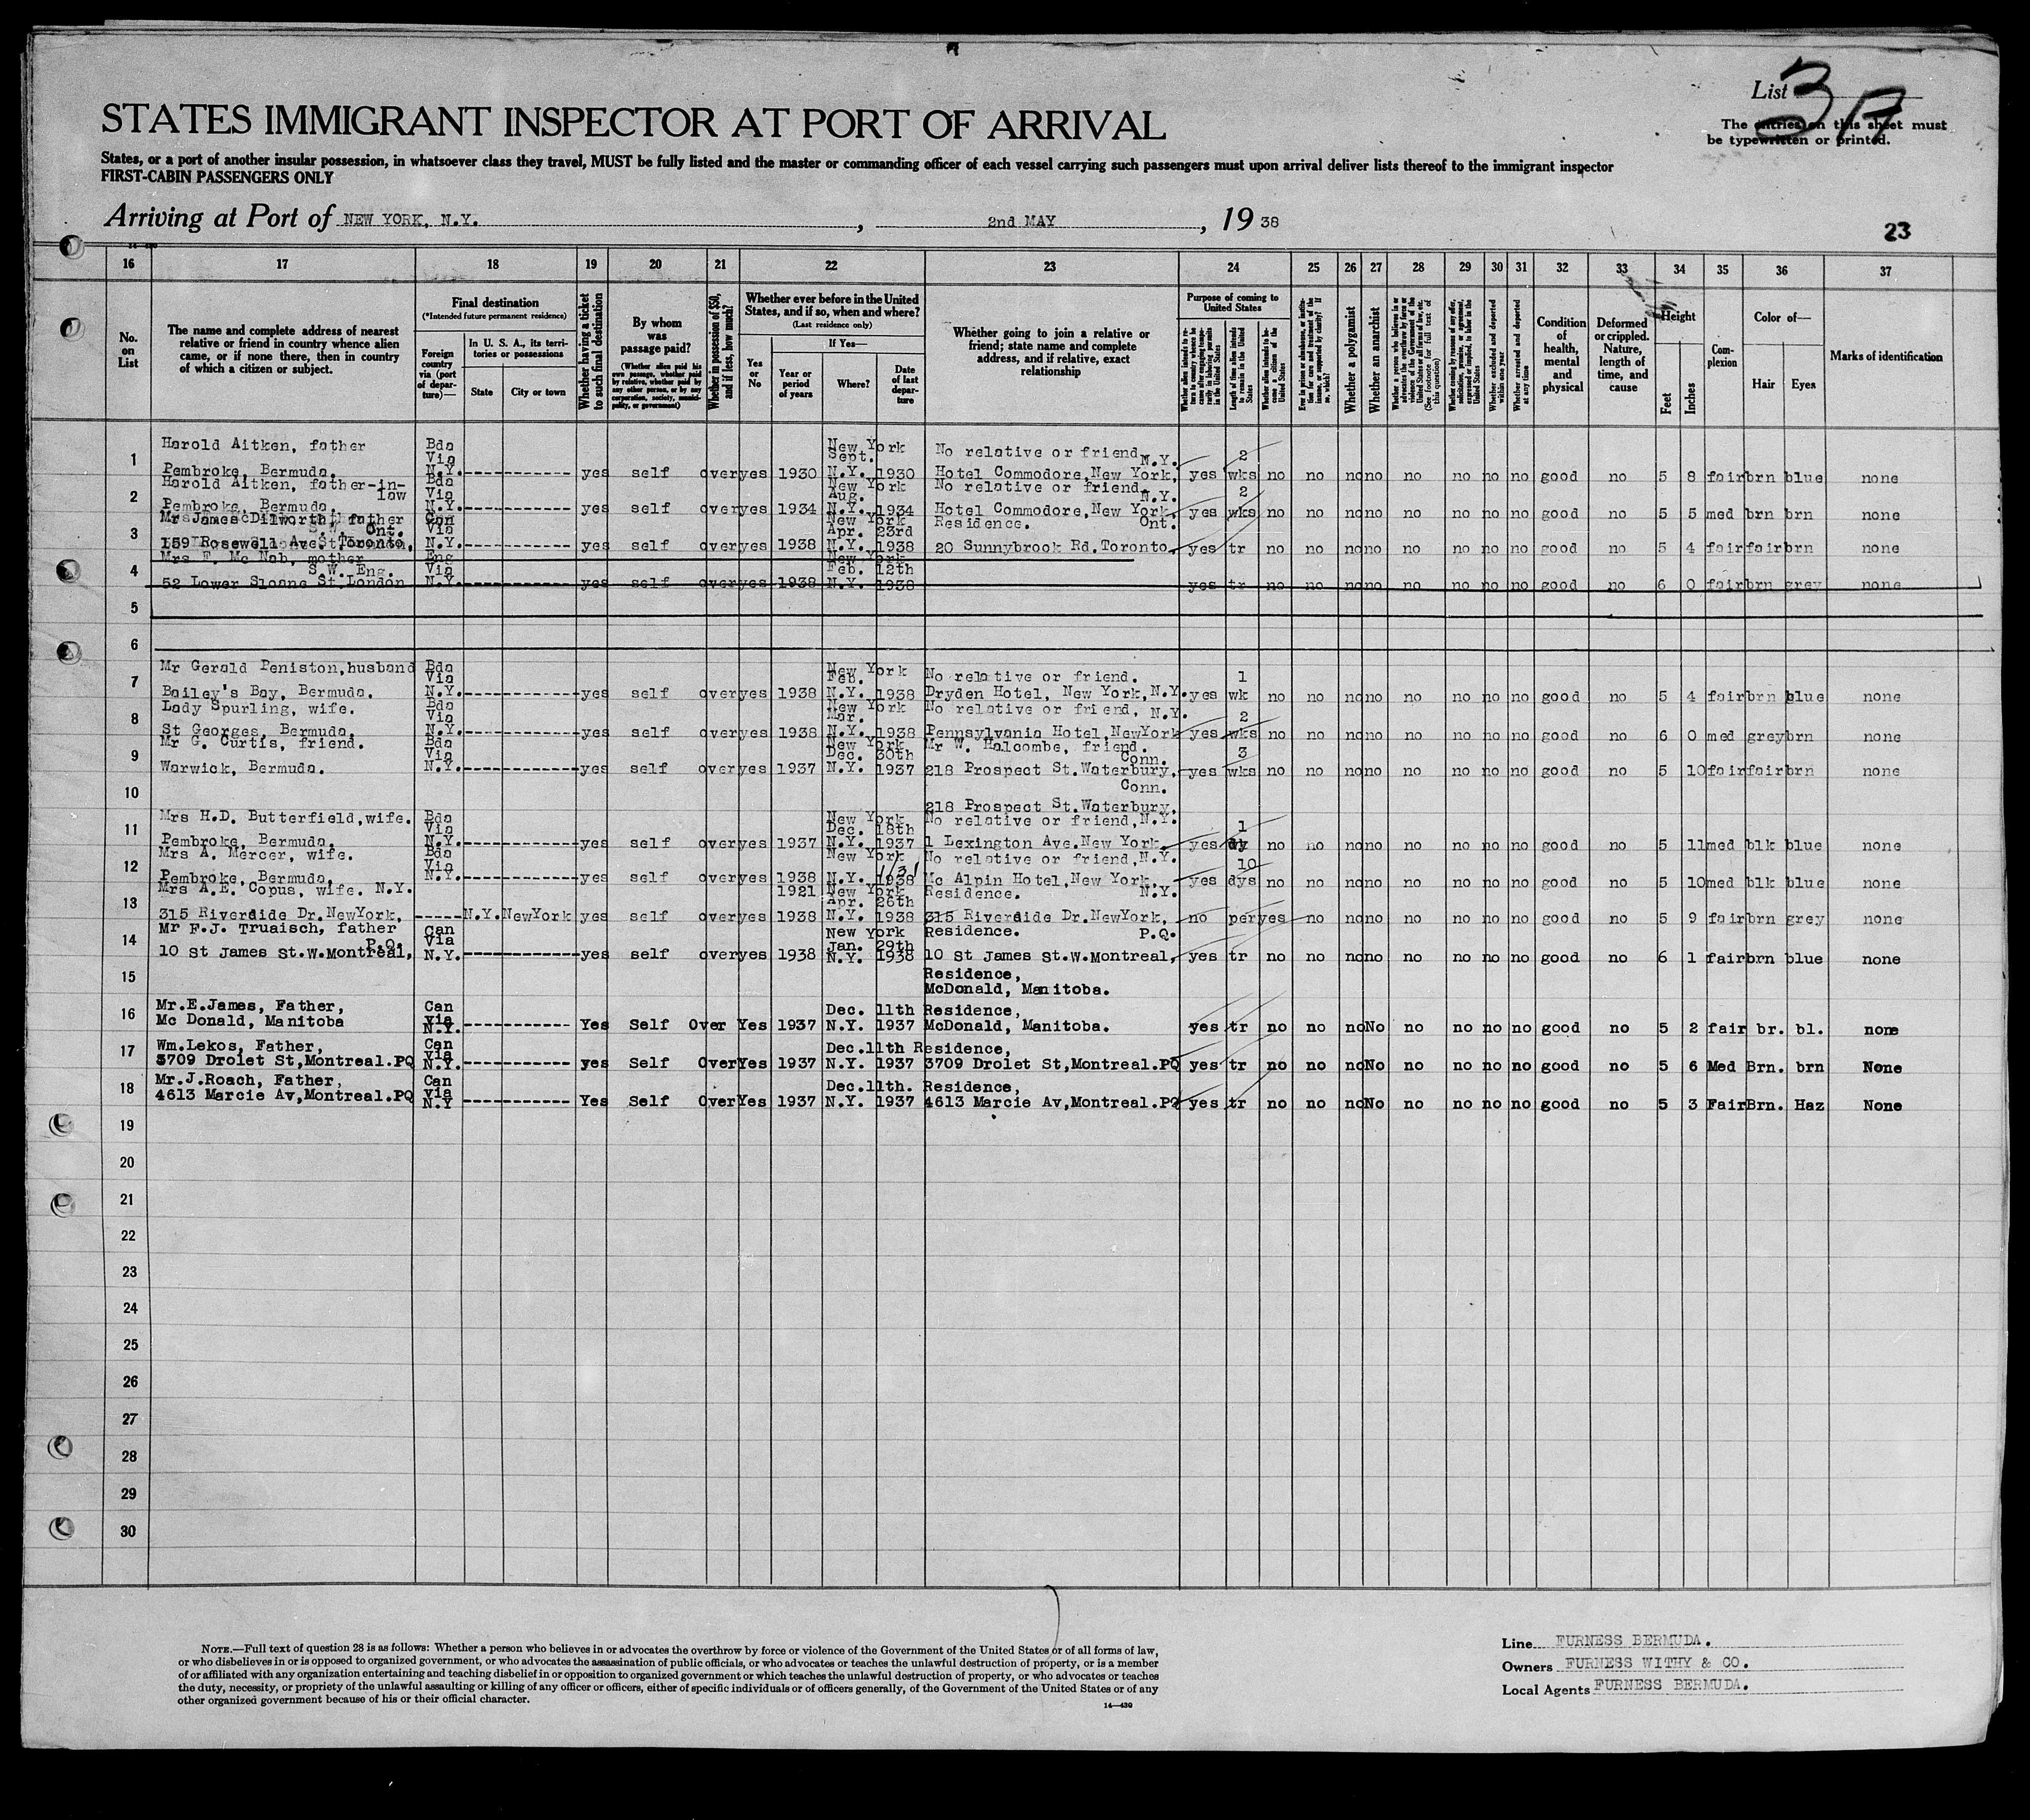 List 3 A
STATES IMMIGRANT INSPECTOR AT PORT OF ARRIVAL
The entries on this sheet must
be typewritten or printed.
States, or a port of another insular possession, in whatsoever class they travel, MUST be fully listed and the master or commanding officer of each vessel carrying such passengers must upon arrival deliver lists thereof to the immigrant inspector
FIRST-CABIN PASSENGERS ONLY
Arriving at Port of NEW YORK, N.Y. , 2nd MAY , 19 38
23
16 17 18 19 20 21 22 23 24 25 26 27 28 29 30 31 32 33 34 35 36 37
No. on List
The name and complete address of nearest
relative or friend in country whence alien
came, or if none there, then in country
of which a citizen or subject.
Final destination
(*Intended future permanent residence)
Foreign country via (port of departure)—
In U. S. A., its territories or possessions
State City or town
Whether having a ticket to such final destination
By whom was passage paid?
(Whether alien paid his own passage, whether paid by relative, whether paid by any other person, or by any corporation, society, municipality, or government)
Whether in possession of $50, and if less, how much?
Whether ever before in the United States, and if so, when and where?
(Last residence only)
Yes or No
If Yes—
Year or period of years
Where?
Date of last departure
Whether going to join a relative or
friend; state name and complete
address, and if relative, exact
relationship
Purpose of coming to United States
Length of time alien intends to remain in the United States
Whether alien intends to become a citizen of the United States
Whether a polygamist
Whether an anarchist
(See footnote for full text of this question)
Whether excluded and deported within one year
Whether arrested and deported at any time
Condition of health, mental and physical
Deformed or crippled. Nature, length of time, and cause
Height
Feet Inches
Complexion
Color of—
Hair Eyes
Marks of identification
1 Harold Aitken, father Bda Via New York Sept. No relative or friend N.Y. 2
Pembroke, Bermuda. N.Y. yes self over yes 1930 N.Y. 1930 Hotel Commodore, New York, yes wks no no no no no no no no good no 5 8 fair brn blue none
2 Harold Aitken, father-in-law Bda Via New York Aug. No relative or friend. N.Y. 2
Pembroke, Bermuda. N.Y. yes self over yes 1934 N.Y. 1934 Hotel Commodore, New York, yes wks no no no no no no no no good no 5 5 med brn brn none
3 Mr James Dilworth, father Can Via New York Apr. 23rd Residence. Ont.
Ont.
159 Rosewell Ave. Toronto, N.Y. yes self over yes 1938 N.Y. 1938 20 Sunnybrook Rd. Toronto. yes tr no no no no no no no no good no 5 4 fair fair brn none
4 Mrs F. Mc Nab, mother Eng Via New York Feb. 12th
S.W. Eng.
52 Lower Sloane St. London N.Y. yes self over yes 1938 N.Y. 1938 yes tr no no no no no no no no good no 6 0 fair brn grey none
5
6
7 Mr Gerald Peniston, husband Bda Via New York Feb. No relative or friend. 1
Bailey's Bay, Bermuda. N.Y. yes self over yes 1938 N.Y. 1938 Dryden Hotel, New York, N.Y. yes wk no no no no no no no no good no 5 4 fair brn blue none
8 Lady Spurling, wife. Bda Via New York Mar. No relative or friend, N.Y. 2
St Georges, Bermuda. N.Y. yes self over yes 1938 N.Y. 1938 Pennsylvania Hotel, NewYork yes wks no no no no no no no no good no 6 0 med grey brn none
9 Mr G. Curtis, friend. Bda Via New York Dec. 30th Mr W. Halcombe, friend. Conn. 3
Warwick, Bermuda. N.Y. yes self over yes 1937 N.Y. 1937 218 Prospect St. Waterbury, yes wks no no no no no no no no good no 5 10 fair fair brn none
10 Conn.
218 Prospect St. Waterbury.
11 Mrs H.D. Butterfield, wife. Bda Via New York Dec. 18th No relative or friend, N.Y. 1
Pembroke, Bermuda. N.Y. yes self over yes 1937 N.Y. 1937 1 Lexington Ave. New York. yes dy no no no no no no no no good no 5 11 med blk blue none
12 Mrs A. Mercer, wife. Bda Via New York 1/31 No relative or friend, N.Y. 10
Pembroke, Bermuda. N.Y. yes self over yes 1938 N.Y. 1938 Mc Alpin Hotel, New York. yes dys no no no no no no no no good no 5 10 med blk blue none
13 Mrs A.E. Copus, wife. N.Y. 1921 New York Apr. 26th Residence. N.Y.
315 Riverside Dr. NewYork, N.Y. NewYork yes self over yes 1938 N.Y. 1938 315 Riverside Dr. NewYork, no per yes no no no no no no no good no 5 9 fair brn grey none
14 Mr F.J. Truaisch, father Can Via New York Jan. 29th Residence. P.Q.
P.Q.
10 St James St. W. Montreal, N.Y. yes self over yes 1938 N.Y. 1938 10 St James St. W. Montreal, yes tr no no no no no no no no good no 6 1 fair brn blue none
15 Residence,
McDonald, Manitoba.
16 Mr. E. James, Father, Can via Dec. 11th Residence,
Mc Donald, Manitoba N.Y. Yes Self Over Yes 1937 N.Y. 1937 McDonald, Manitoba. yes tr no no no No no no no no good no 5 2 fair br. bl. none
17 Wm. Lekos, Father, Can via Dec. 11th Residence,
3709 Drolet St, Montreal. PQ N.Y. yes Self Over Yes 1937 N.Y. 1937 3709 Drolet St, Montreal. PQ yes tr no no no No no no no no good no 5 6 Med Brn. brn None
18 Mr. J. Roach, Father, Can via Dec. 11th. Residence,
4613 Marcie Av, Montreal. PQ N.Y Yes Self Over Yes 1937 N.Y. 1937 4613 Marcie Av, Montreal. PQ yes tr no no no No no no no no good no 5 3 Fair Brn. Haz None
19
20
21
22
23
24
25
26
27
28
29
30
NOTE.—Full text of question 28 is as follows: Whether a person who believes in or advocates the overthrow by force or violence of the Government of the United States or of all forms of law,
or who disbelieves in or is opposed to organized government, or who advocates the assassination of public officials, or who advocates or teaches the unlawful destruction of property, or is a member
of or affiliated with any organization entertaining and teaching disbelief in or opposition to organized government or which teaches the unlawful destruction of property, or who advocates or teaches
the duty, necessity, or propriety of the unlawful assaulting or killing of any officer or officers, either of specific individuals or of officers generally, of the Government of the United States or of any
other organized government because of his or their official character.
14—430
Line FURNESS BERMUDA.
Owners FURNESS WITHY & CO.
Local Agents FURNESS BERMUDA.